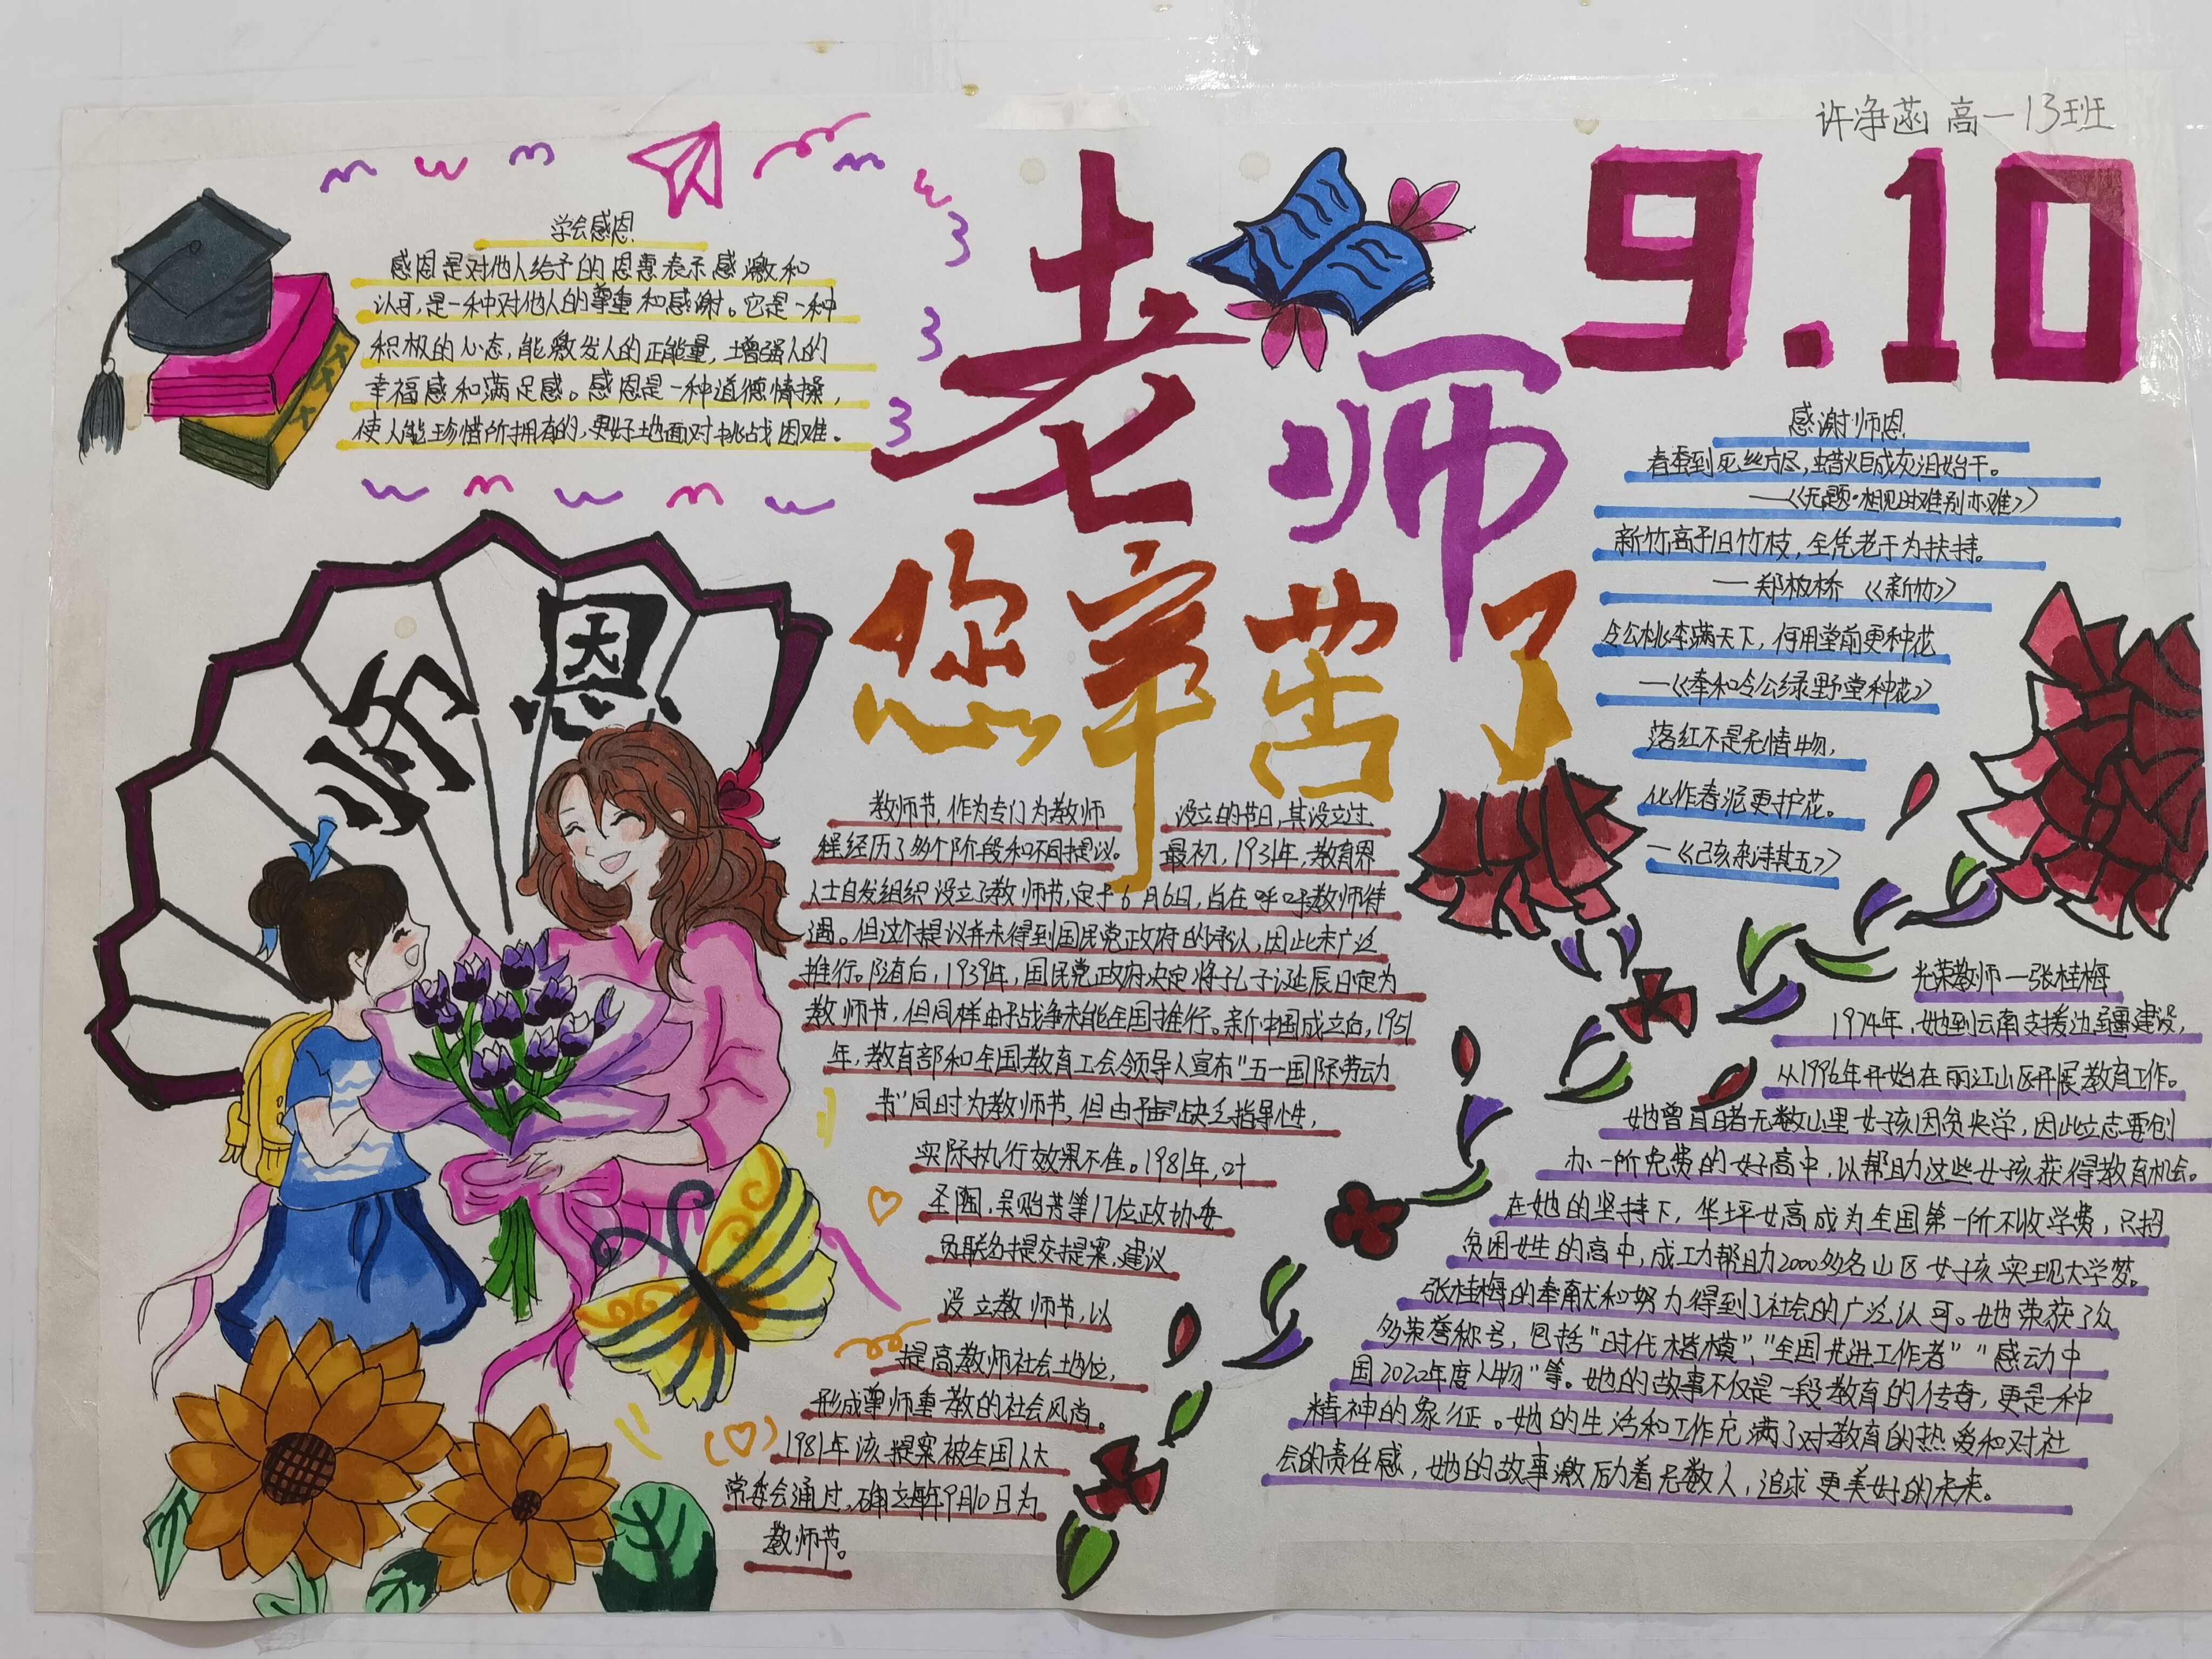 许净菡 高一13班
9.10
老师
您辛苦了
学会感恩
感恩是对他人给予的恩惠表示感激和
认可,是一种对他人的尊重和感谢。它是一种
积极的心态,能激发人的正能量,增强人的
幸福感和满足感。感恩是一种道德情操,
使人能珍惜所拥有的,更好地面对挑战困难。
师恩
教师节,作为专门为教师 设立的节日,其设立过
程经历了多个阶段和不同提议。 最初,1931年,教育界
人士自发组织设立了教师节,定于6月6日,旨在呼吁教师待
遇。但这个提议并未得到国民党政府的承认,因此未广泛
推行。随后,1939年,国民党政府决定将孔子诞辰日定为
教师节,但同样由于战争未能全国推行。新中国成立后,1951
年,教育部和全国教育工会领导人宣布"五一国际劳动
节"同时为教师节,但由于缺乏指导性,
实际执行效果不佳。1981年,叶
圣陶,吴贻芳等17位政协委
员联名提交提案,建议
设立教师节,以
提高教师社会地位,
形成尊师重教的社会风尚。
1981年该提案被全国人大
常委会通过,确立每年9月10日为
教师节。
感谢师恩
春蚕到死丝方尽,蜡炬成灰泪始干。
——《无题·相见时难别亦难》
新竹高于旧竹枝,全凭老干为扶持。
——郑板桥 《新竹》
令公桃李满天下,何用堂前更种花
—《奉和令公绿野堂种花》
落红不是无情物,
化作春泥更护花。
—《己亥杂诗其五》
光荣教师—张桂梅
1974年,她到云南支援边疆建设,
从1996年开始在丽江山区开展教育工作。
她曾目睹无数山里女孩因贫失学,因此立志要创
办一所免费的女子高中,以帮助这些女孩获得教育机会。
在她的坚持下,华坪女高成为全国第一所不收学费,只招
贫困女生的高中,成功帮助2000多名山区女孩实现大学梦。
张桂梅的奉献和努力得到了社会的广泛认可。她荣获了众
多荣誉称号,包括"时代楷模"、"全国先进工作者""感动中
国2020年度人物"等。她的故事不仅是一段教育的传奇,更是一种
精神的象征。她的生活和工作充满了对教育的热爱和对社
会的责任感,她的故事激励着无数人,追求更美好的未来。